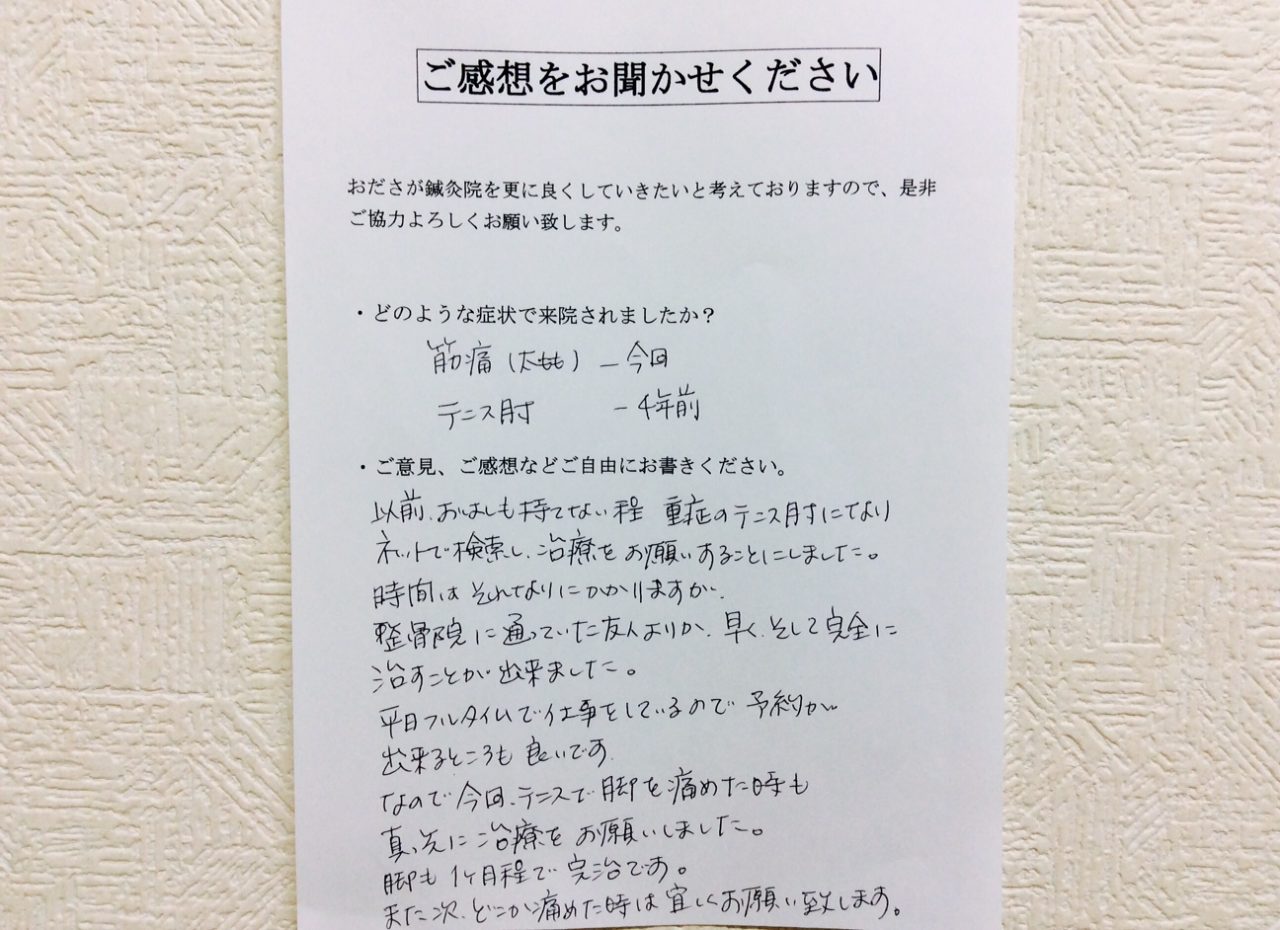 ご感想をお聞かせください
おださが鍼灸院を更に良くしていきたいと考えておりますので、是非
ご協力よろしくお願い致します。
・どのような症状で来院されましたか？
筋痛（太もも）－今回
テニス肘 －4年前
・ご意見、ご感想などご自由にお書きください。
以前、おはしも持てない程 重症のテニス肘になり
ネットで検索し、治療をお願いすることにしました。
時間はそれなりにかかりますが、
整骨院に通っていた友人よりか、早く、そして完全に
治すことが出来ました。
平日フルタイムで仕事をしているので予約が
出来るところも良いです。
なので今回、テニスで脚を痛めた時も
真っ先に治療をお願いしました。
脚も1ヶ月程で完治です。
また次、どこか痛めた時は宜しくお願い致します。